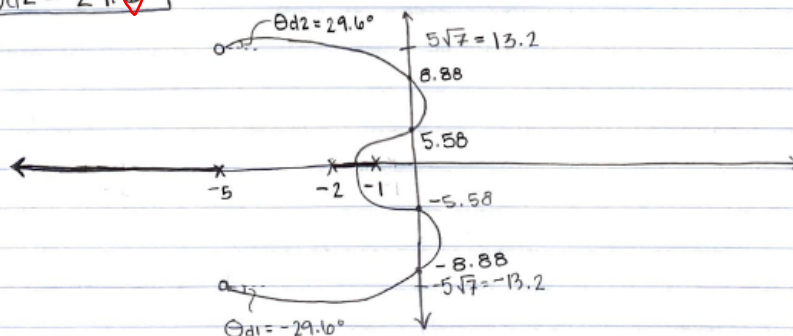 θd2 = 29.6°
5√7 = 13.2
8.88
5.58
-5 -2 -1
-5.58
-8.88
-5√7 = -13.2
θd1 = -29.6°